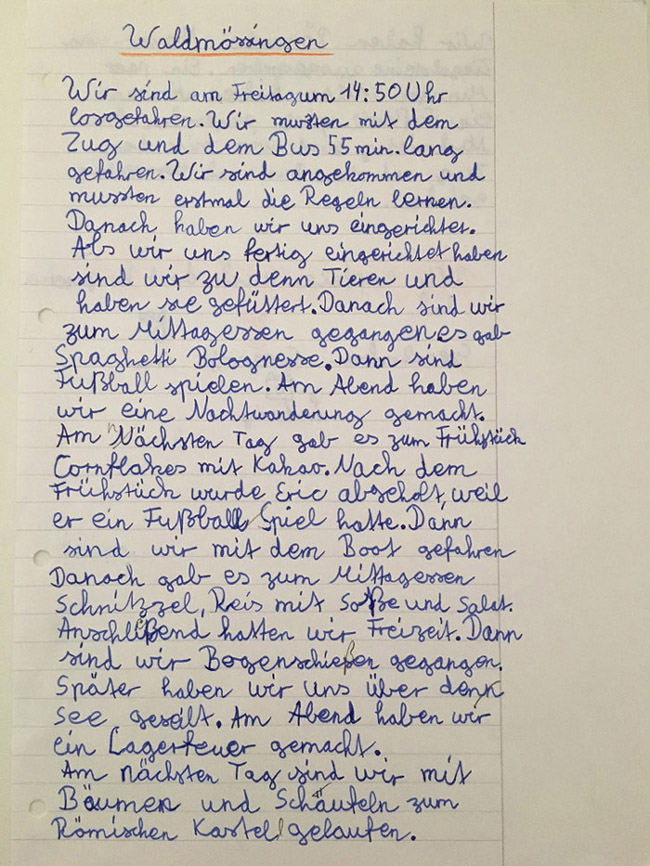 Waldmössingen
Wir sind am Freitagum 14:50 Uhr
losgefahren. Wir mussten mit dem
Zug und dem Bus 55 min. lang
gefahren. Wir sind angekommen und
mussten erstmal die Regeln lernen.
Danach haben wir uns eingerichtet.
Als wir uns fertig eingerichtet haben
sind wir zu denn Tieren und
haben sie gefüttert. Danach sind wir
zum Mittagessen gegangen.es gab
Spaghetti Bolognesse. Dann sind
Fußball spielen. Am Abend haben
wir eine Nachtwanderung gemacht.
Am nächsten Tag gab es zum Frühstück
Cornflakes mit Kakao. Nach dem
Frühstück wurde Eric abgeholt, weil
er ein Fußball Spiel hatte. Dann
sind wir mit dem Boot gefahren
Danach gab es zum Mittagessen
Schnitzzel, Reis mit Soße und Salat.
Anschließend hatten wir Freizeit. Dann
sind wir Bogenschießen gegangen.
Später haben wir uns über den
see geseilt. Am Abend haben wir
ein Lagerfeuer gemacht.
Am nächsten Tag sind wir mit
Bäumen und Schäufeln zum
Römischen Kastell gelaufen.